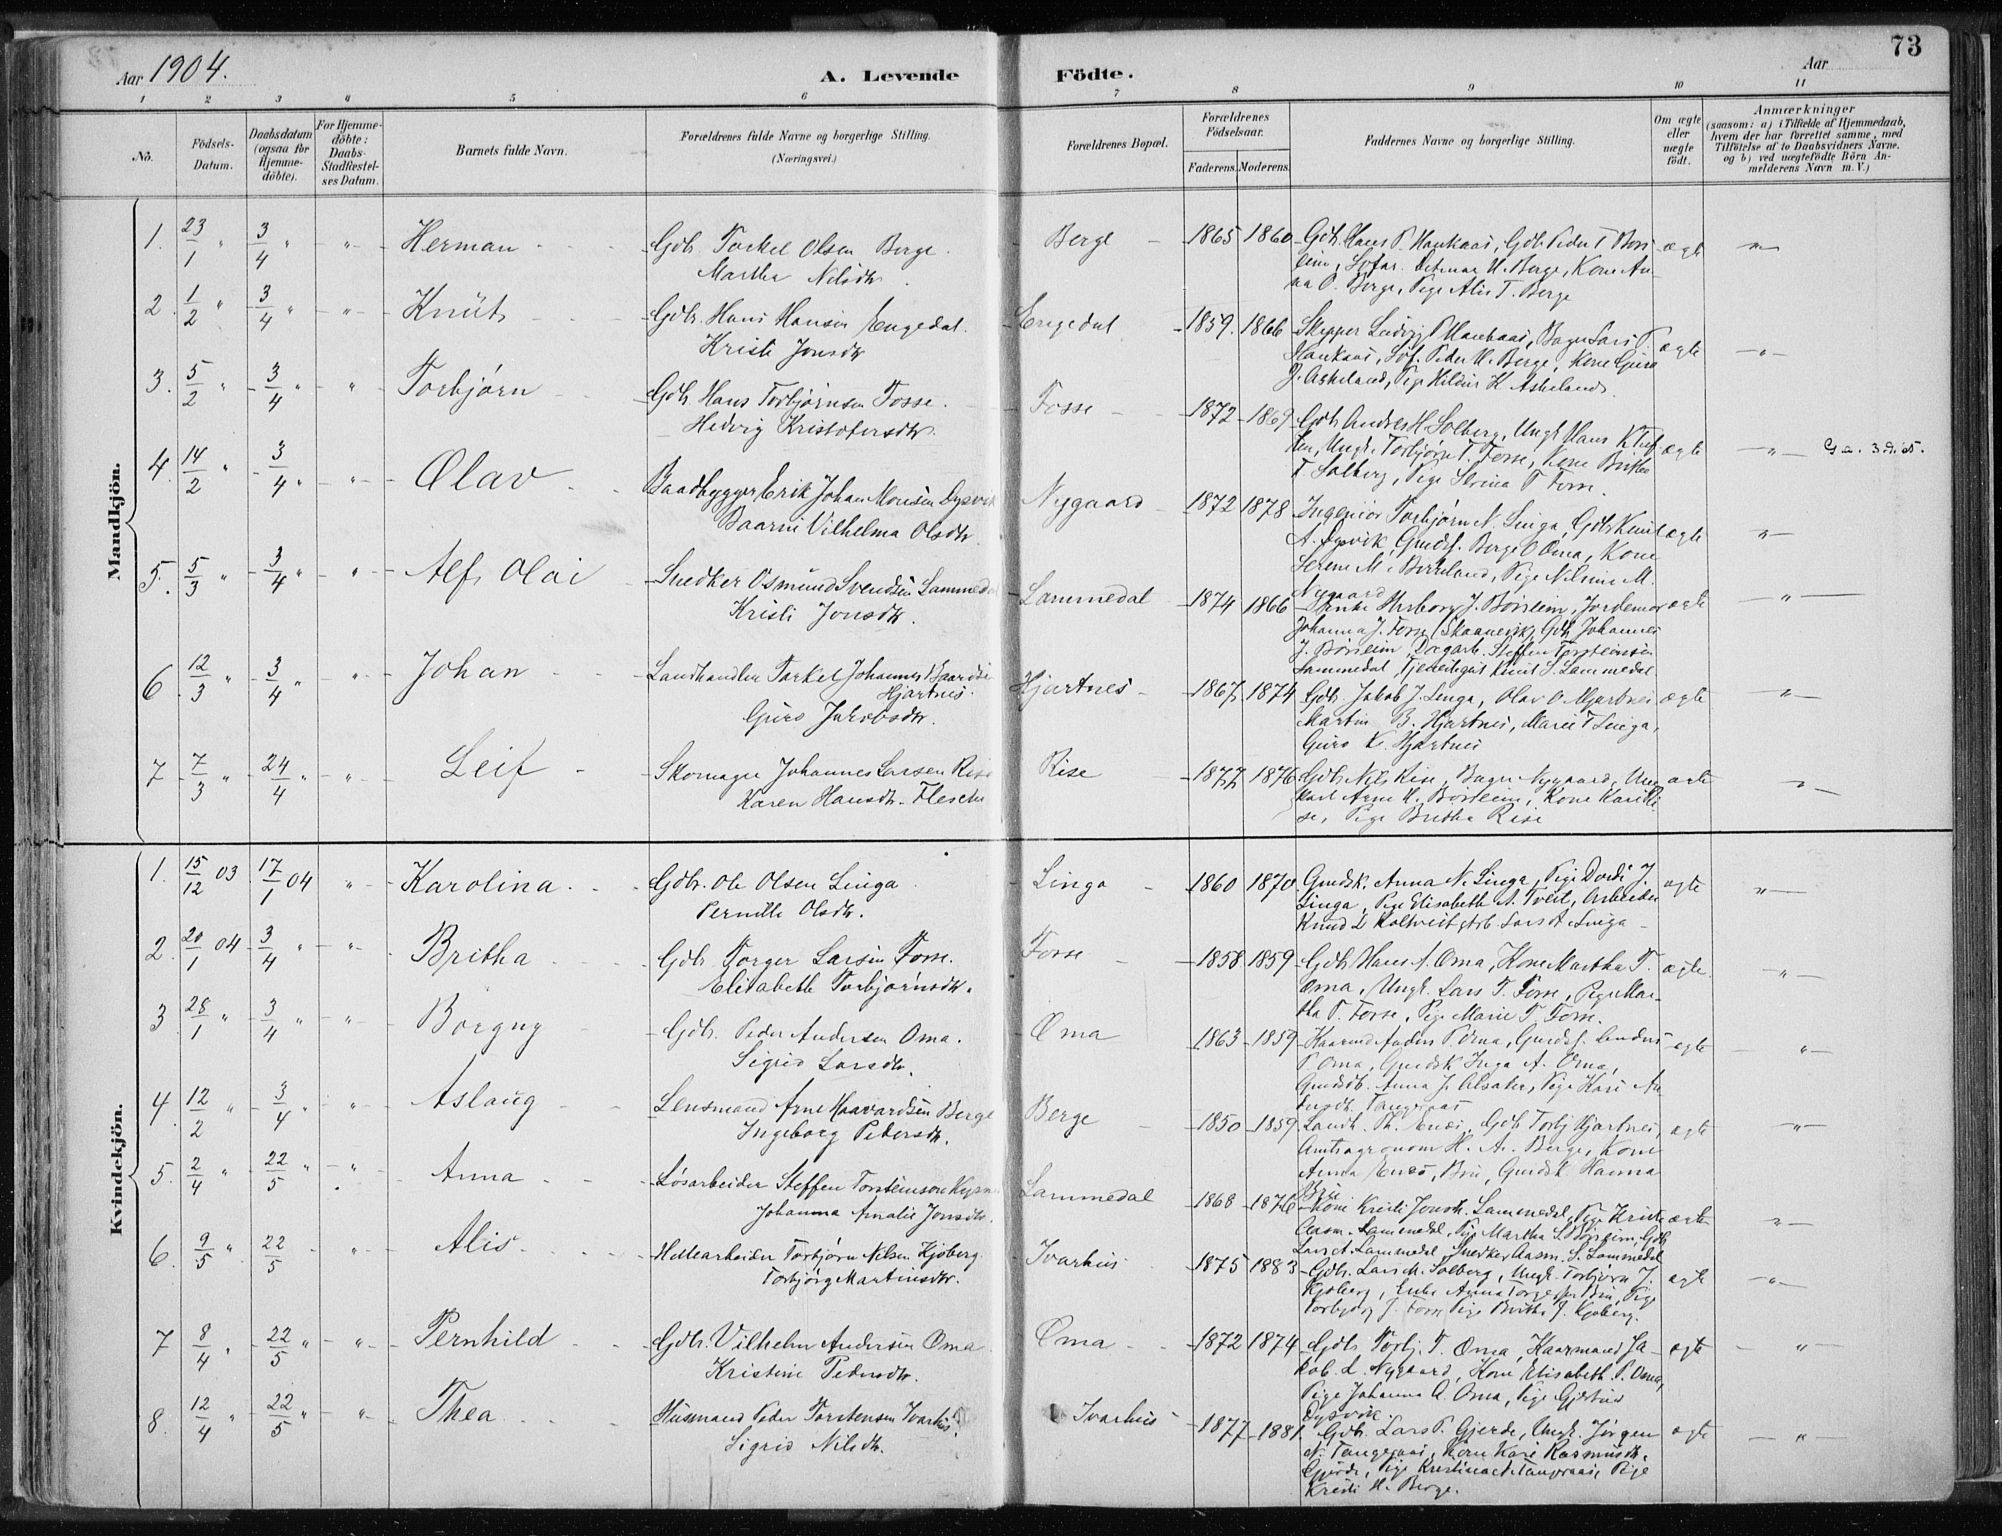 73
Aar 1904. A. Levende Födte. Aar
1 2 3 4 5 6 7 8 9 10 11
No.
Födsels-Datum.
Daabsdatum (ogsaa for Hjemme-döbte).
For Hjemme-döbte: Daabs-Stadfestel-ses Datum.
Barnets fulde Navn.
Forældrenes fulde Navne og borgerlige Stilling. (Næringsvei.)
Forældrenes Bopæl.
Forældrenes Födselsaar.
Faderens. Moderens.
Faddernes Navne og borgerlige Stilling.
Om ægte eller uægte født.
Anmærkninger (saasom: a) i Tilfælde af Hjemmedaab, hvem der har forrettet samme, med Tilföielse af to Daabsvidners Navne. og b) ved uægtefödte Börn An-melderens Navn m. V.)
Mandkjön.
1. 23/1 " 3/4 " " Herman Gdb. Torkel Olsen Berge. Berge 1865 1860 Gdb. Hans P. Haukaas, Gdb. Peder T. Børs ægte "
Martha Nilsdtr. leim, Lofar. Detmar H. Berge, Kone An-
na O. Berge, Pige Alis T. Berge
2. 1/2 " 3/4 " " Knut Gdb. Hans Hansen Engedal. Engedal 1859. 1866 Skipper Ludvig P. Haukaas, Bager Lars P. ægte "
Kristi Jonsdtr. Haukaas, Lof. Peder H. Berge, Kone Guro
J. Askeland, Pige Hildur K. Askeland.
3. 5/2 " 3/4 " " Torbjørn Gdb. Hans Torbjørnsen Fosse. Fosse 1872 1869 Gdb. Andres H. Solberg, Ungk. Hans K. ægte " G a. 3.
Hedvig Kristofersdtr. Ungk. Torbjørn T. Fosse, Kone Britha
T. Solberg, Pige Serina T. Fosse.
4. 14/2 " 3/4 " " Olav Baadbygger Erik Johan Monsen Dysvik Nygaard 1872 1878 Ingeniør Torbjørn N. Linga, Gdb. Knut ægte "
Vilhelma Olsdtr. A. Dysvik, Gmdsf. Berge O. Oma, Kone
Serine M. Berneland, Pige Nilsine M.
Nygaard
5. 5/3 " 3/4 " " Alf Olai Snedker Osmund Svendsen Lammedal Lammedal 1874 1866 Enke Herborg J. Børsleim, Jordemor ægte "
Kristi Jonsdtr. Johanna J. Fosse (Skaanevik), Gdb. Johannes
J. Børsleim Dagarb. Steffen Torsteinsen
Lammedal, Tjenestegut Knut S. Lammedal
6 12/3 " 3/4 " " Johan Landhandler Torkel Johannes Baardsen Hjartnes 1867. 1874 Gdb. Jakob J. Linga, Olav O. Hjartnes ægte "
Hjartnes. Martin B. Hjartnes, Marie T. Linga,
Guro Jakobsdtr. Guro K. Hjartnes
7 7/3 " 24/4 " " Leif Skomager Johannes Larsen Rise Rise 1877 1876 Gdb. Nils Rise, Bager Nygaard, Ung ægte "
Karen Hansdtr. Flesche karl Arne H. Børsleim, Kone Kari Ri
se, Pige Britha Rise
Kvindekjön.
1. 15/12 03 17/1 04 " Karolina Gdb. Ole Olsen Linga Linga 1860 1870 Gmdsk. Anna N. Linga, Pige Dordi J. ægte "
Pernille Olsdtr. Linga, Pige Elisabeth A. Tveit, Arbeider
Knud L. Koltveit, Gdb. Lars A. Linga
2. 20/1 04 3/4 " " Britha Gdb. Torger Larsen Fosse. Fosse 1858 1859 Gdb. Hans A. Oma, Kone Martha T. ægte. "
Elisabeth Torbjørnsdtr. Oma, Ungk. Lars T. Fosse, Pige Mar-
tha P. Fosse, Pige Marie T. Fosse.
3 28/1 " 3/4 " " Borgny Gdb. Peder Andersen Oma. Oma 1863 1859 Kaarmd. Anders P. Oma, Gmdsf. Anders ægte "
Sigrid Larsdtr. P. Oma, Gmdsk. Inga A. Oma,
Gmdsd. Anna J. Alsaker, Pige Kari An
dersdtr. Tangeraas
4. 12/2 " 3/4 " " Aslaug Lensmand Arne Haavardsen Berge Berge 1850 1859 Landh. Enes, Gdb. Torbj. Hjartnes, ægte "
Ingeborg Pedersdtr. Amtsagronom H. A. Berge, Kone
Anna Enes, Bru, Gmdsk. Hanna
Bru
5. 2/4 " 22/5 " " Anna Løsarbeider Steffen Torsteinson Lammedal 1868 1876 Kone Kristi Jonsdtr. Lammedal, Pige Kristi ægte "
Johanna Amalie Jonsdtr. Aasm. Lammedal, Pige Martha S. Børsleim, Gdb.
Lars A. Lammedal, Snedker Aasm. S. Lammedal
6. 9/5 " 22/5 " Alis Torbjørn Nilsen Kjøberg Ivarhus 1875 1883 Gdb. Lars M. Solberg, Ungk. Torbjørn J. ægte "
Torbjørg Martinsdtr. Kjøberg, Enke Anna Bru, Pige
Torbjørg J. Fosse Pige Britha J. Kjøberg.
7 8/4 " 22/5 " " Pernhild Gdb. Vilhelm Andersen Oma Oma 1872 1874 Gdb. Torbj. T. Oma, Kaarmand Ja- ægte "
Kristine Pedersdtr. kob L. Nygaard, Kone Elisabeth P. Oma,
Pige Johanna A. Oma, Pige Gjertrud
Dysvik.
8. 12/4 " 22/5 " " Thea Husmand Peder Torstensen Ivarhus Ivarhus 1877 1881. Gdb. Lars P. Gjerde, Ungk. Jørgen ægte "
Sigrid Nilsdtr. N. Tangeraas, Kone Kari Rasmusdtr.
Gjerde, Pige Kristina N. Tangeraas, Pige
Kristi H. Berge.